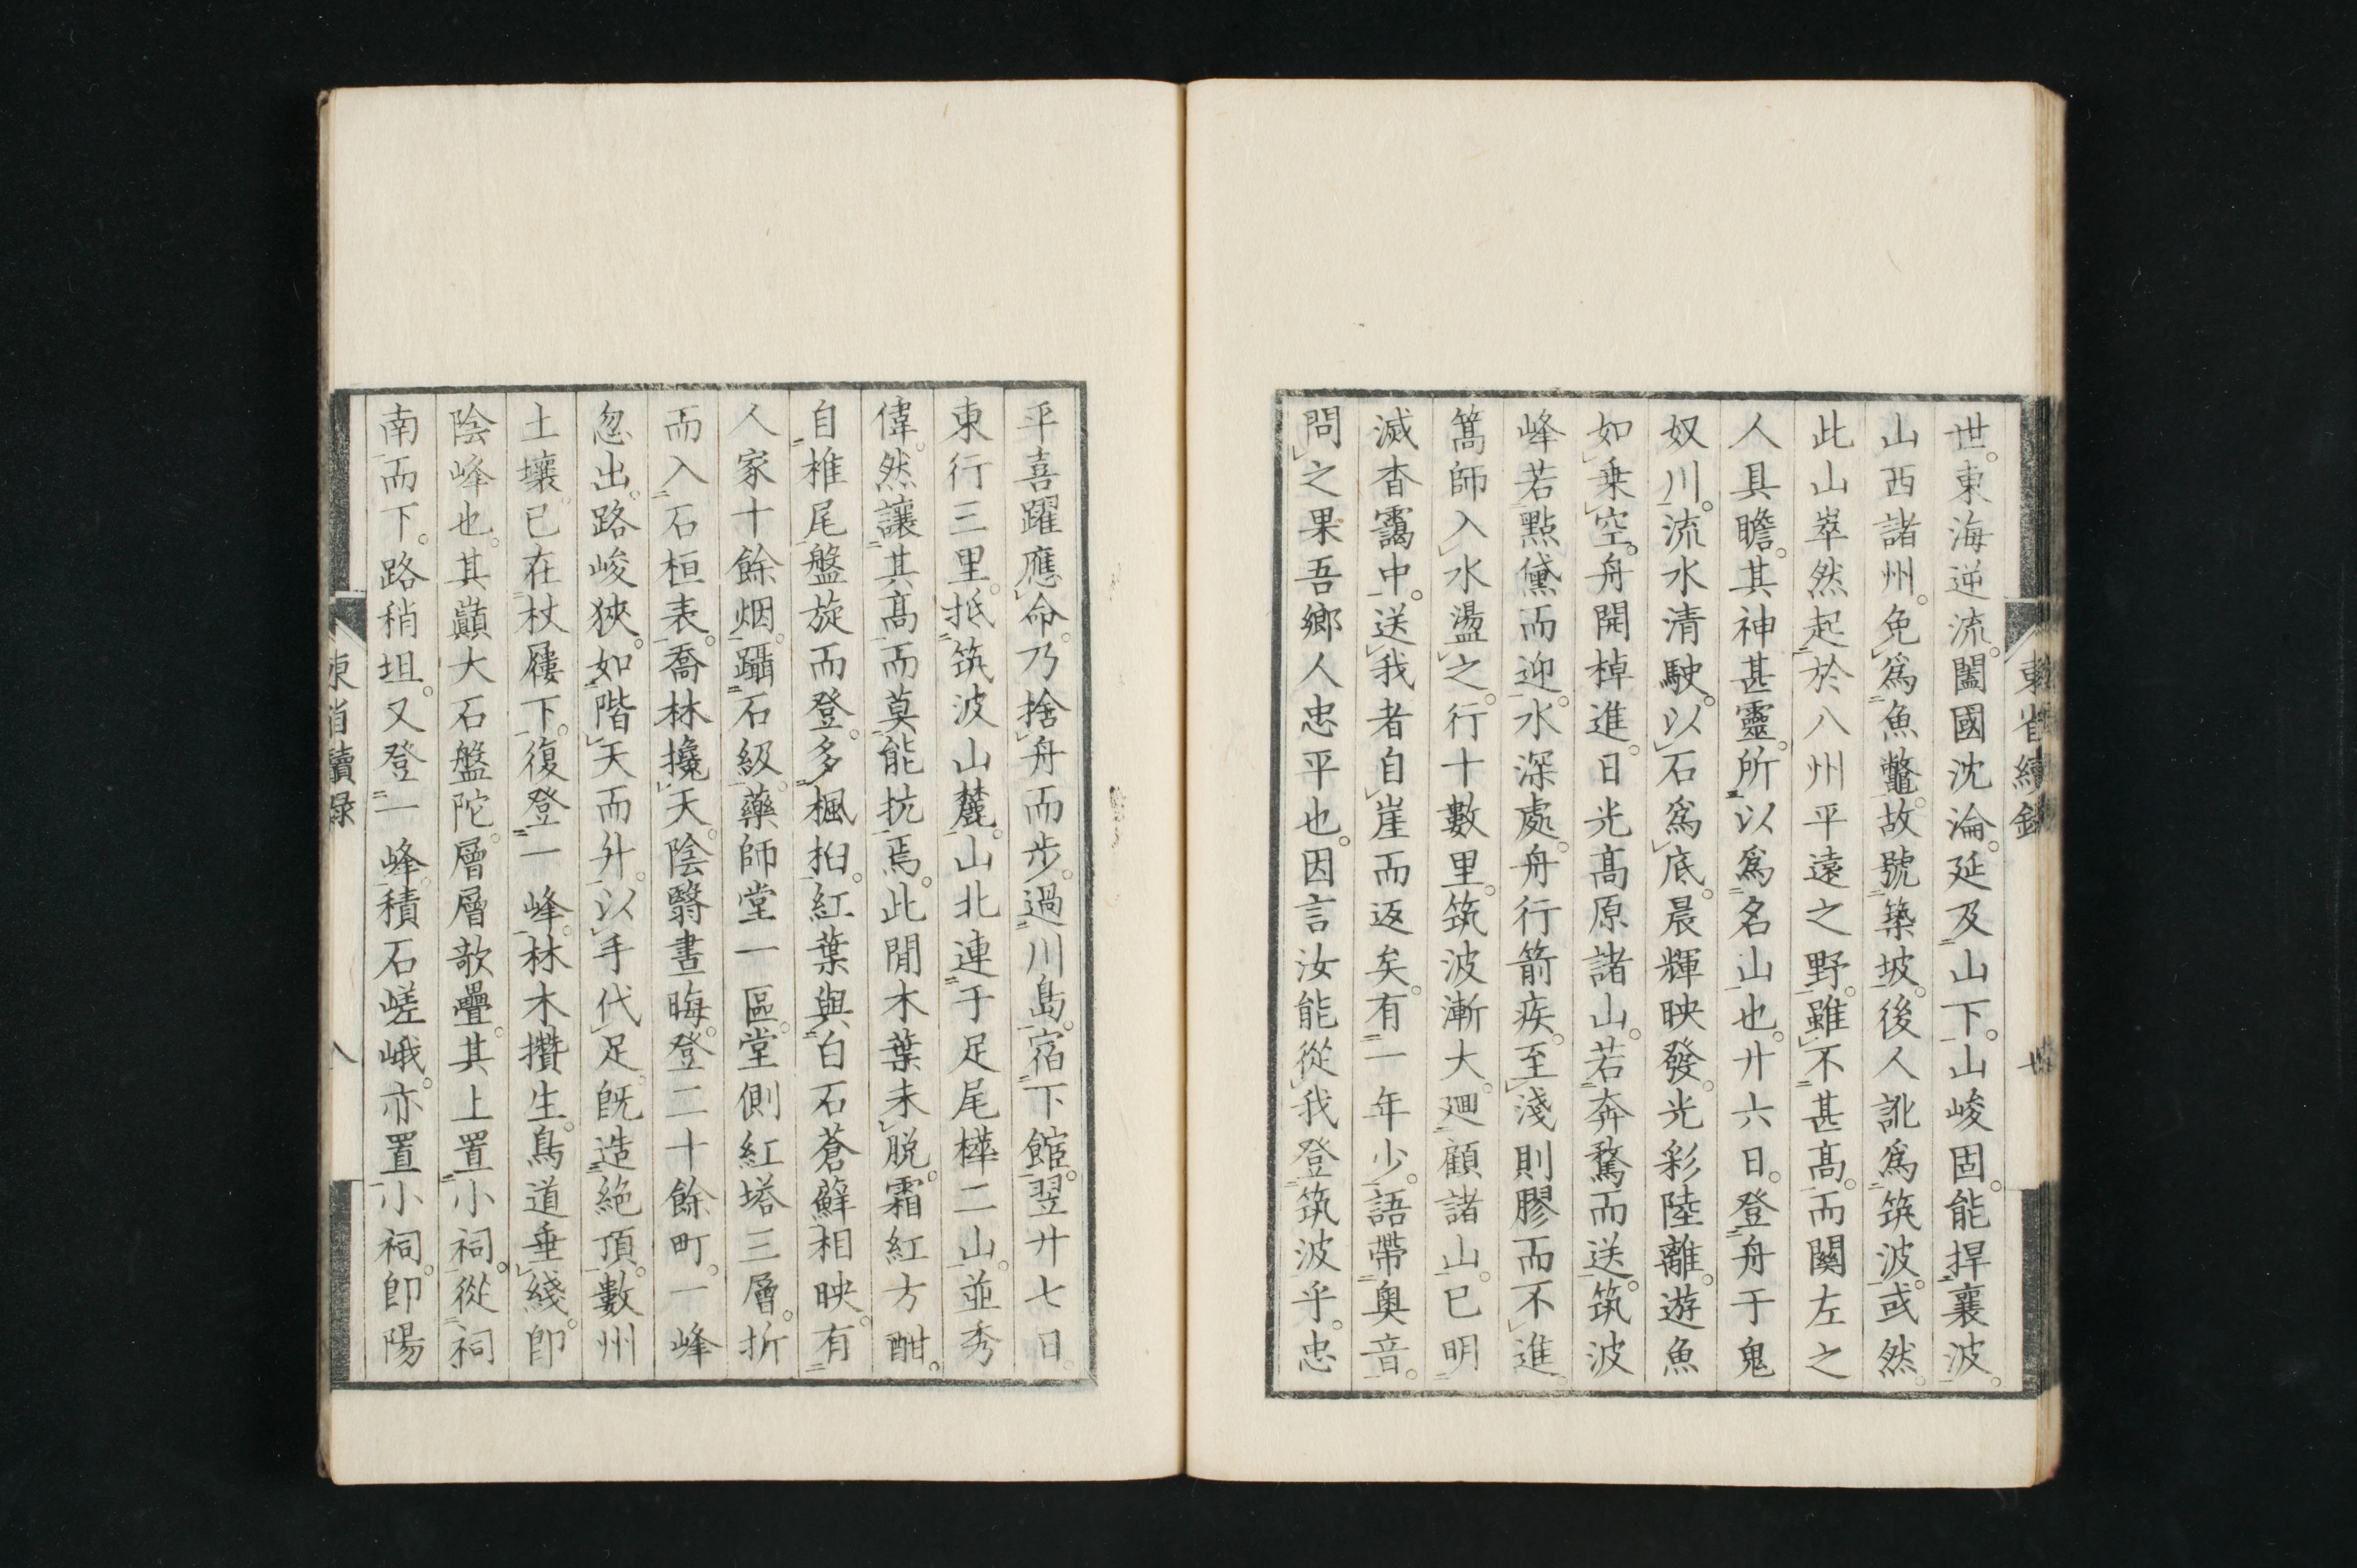 世。東海逆流。闔國沈淪。延及山下。山峻固。能捍襄波。
山西諸州。免爲魚鼈。故號築坡。後人訛爲筑波。或然。
此山崒然起於八州平遠之野。雖不甚高。而關左之
人具瞻。其神甚靈。所以爲名山也。廿六日。登舟于鬼
奴川。流水清駛。以石爲底。晨輝映發。光彩陸離。遊魚
如乗空。舟開棹進。日光高原諸山。若奔騖而送。筑波
峰若點黛而迎。水深處。舟行箭疾。至淺則膠而不進。
篙師入水盪之。行十數里。筑波漸大。廻顧諸山。已明
滅杳靄中。送我者自崖而返矣。有一年少。語帶奥音。
問之果吾鄉人忠平也。因言汝能從我登筑波乎。忠
東省續錄
七
平喜躍應命。乃捨舟而步。過川島。宿下館。翌廿七日。
東行三里。抵筑波山麓。山北連于足尾樺二山。並秀
偉。然讓其高。而莫能抗焉。此閒木葉未脱。霜紅方酣。
自椎尾盤旋而登。多楓柏。紅葉與白石蒼蘚相映。有
人家十餘烟。躡石級。藥師堂一區。堂側紅塔三層。折
而入石桓表。喬林攙天。陰翳晝晦。登二十餘町。一峰
忽出。路峻狹。如階天而升。以手代足。既造絶頂。數州
土壤。已在杖屨下。復登一峰。林木攢生。鳥道垂綫。卽
陰峰也。其巓大石盤陀。層層欹疊。其上置小祠。從祠
南而下。路稍坦。又登一峰。積石嵯峨。亦置小祠。卽陽
東省續錄
八